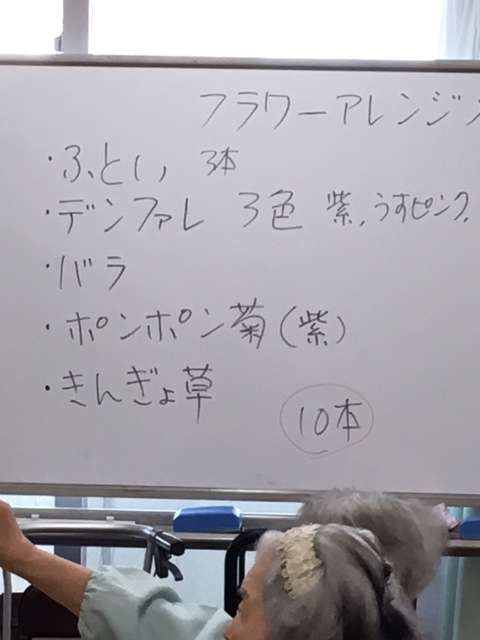 フラワーアレンジ
・ふとい 3本
・デンファレ 3色 紫,うすピンク,
・バラ
・ポンポン菊(紫)
・きんぎょ草
10本